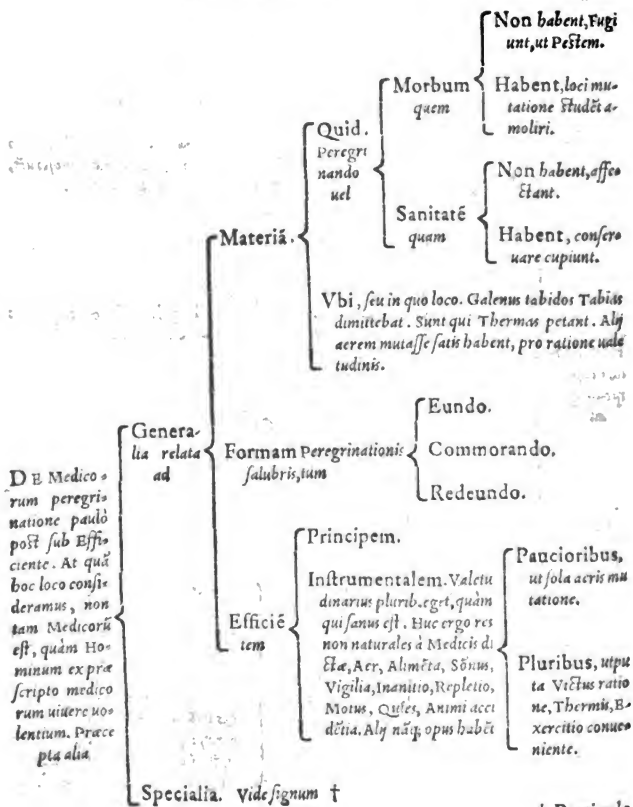 DE Medico-
rum peregri-
natione paulò
post sub Effi-
ciente. At quā
hoc loco consi-
deramus, non
tam Medicorū
est, quàm Ho-
minum ex præ
scripto medico
rum uiuere uo-
lentium. Præce
pta alia
Genera-
lia relata
ad
Materiā.
Quid.
Peregri
nando
uel
Morbum
quem
Non habent, Fugi
unt, ut Pestem.
Habent, loci mu-
tatione studēt a-
moliri.
Sanitatē
quam
Non habent, affe-
ctant.
Habent, conser-
uare cupiunt.
Vbi, seu in quo loco. Galenus tabidos Tabias
dimittebat. Sunt qui Thermas petant. Alij
aerem mutasse satis habent, pro ratione uale
tudinis.
Formam Peregrinationis
salubris, tum
Eundo.
Commorando.
Redeundo.
Efficiē
tem
Principem.
Instrumentalem. Valetu
dinarius plurib. eget, quàm
qui sanus est. Huc ergo res
non naturales à Medicis di
ctæ, Aer, Alimēta, Sōnus,
Vigilia, Inanitio, Repletio,
Motus, Quies, Animi acci
dētia. Alij nāq; opus habēt
Paucioribus,
ut sola aeris mu
tatione.
Pluribus, utpu
ta Victus ratio
ne, Thermis, E-
xercitio conue-
niente.
Specialia. Vide signum †